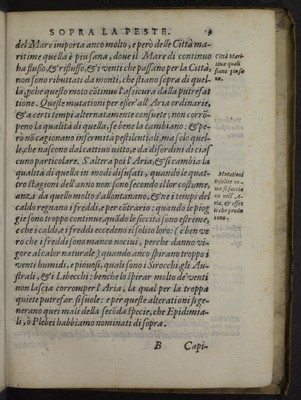 SOPRA LA PESTE. 9
del Mare importa anco molto, e però delle Città ma-
ritime quella è piu sana, doue il Mare di continuo
ha flusso, & riflusso, & i venti che passano per la Città,
non sono ributtati da monti, che stiano sopra di quel-
la, pche questo moto cōtinuo l'assicura dalla putrefat
tione. Queste mutationi per esser all'Aria ordinarie,
& a certi tempi alternatamente consuete, non corrō-
peno la qualità di quella, se bene la cambiano: & pe-
rò nō cagionano enfermità pestilentiali, ma solo quel-
le, che nascono dal cattiuo uitto, e da disordini di cias
cuno particolare. S'altera poi l'Aria, & si cambia la
qualità di quella in modi disusati, quando le quat-
tro stagioni dell'anno non sono secondo il lor costume,
anzi da quello molto s'allontanano, & ne i tempi del
caldo regnano i freddi, e per cōtrario; quando le piog
gie sono troppo continue, quādo le siccità sono estreme,
e che i caldi, e i freddi eccedeno il solito loro: (e ben ve
ro che i freddi sono manco nociui, perche danno vi-
gore al calor naturale) quando anco spirano troppo i
venti humidi, e piouosi, quali sono i Sirocchi gli Au-
strali, & i Libecchi: benche lo spirar molto de' venti
non lascia corromper l'Aria, la qual per la troppa
quiete putrefar si suole: e per queste alterationi si ge-
nerano quei mali della secōda specie, che Epidimia-
li, ò Plebei habbiamo nominati di sopra.
B Capi-
Città Mari-
time quali
siano piu sa-
ne.
Mutationi
insolite co-
me si faccia
no nell'A-
ria, & effet
ti che produ
cono.